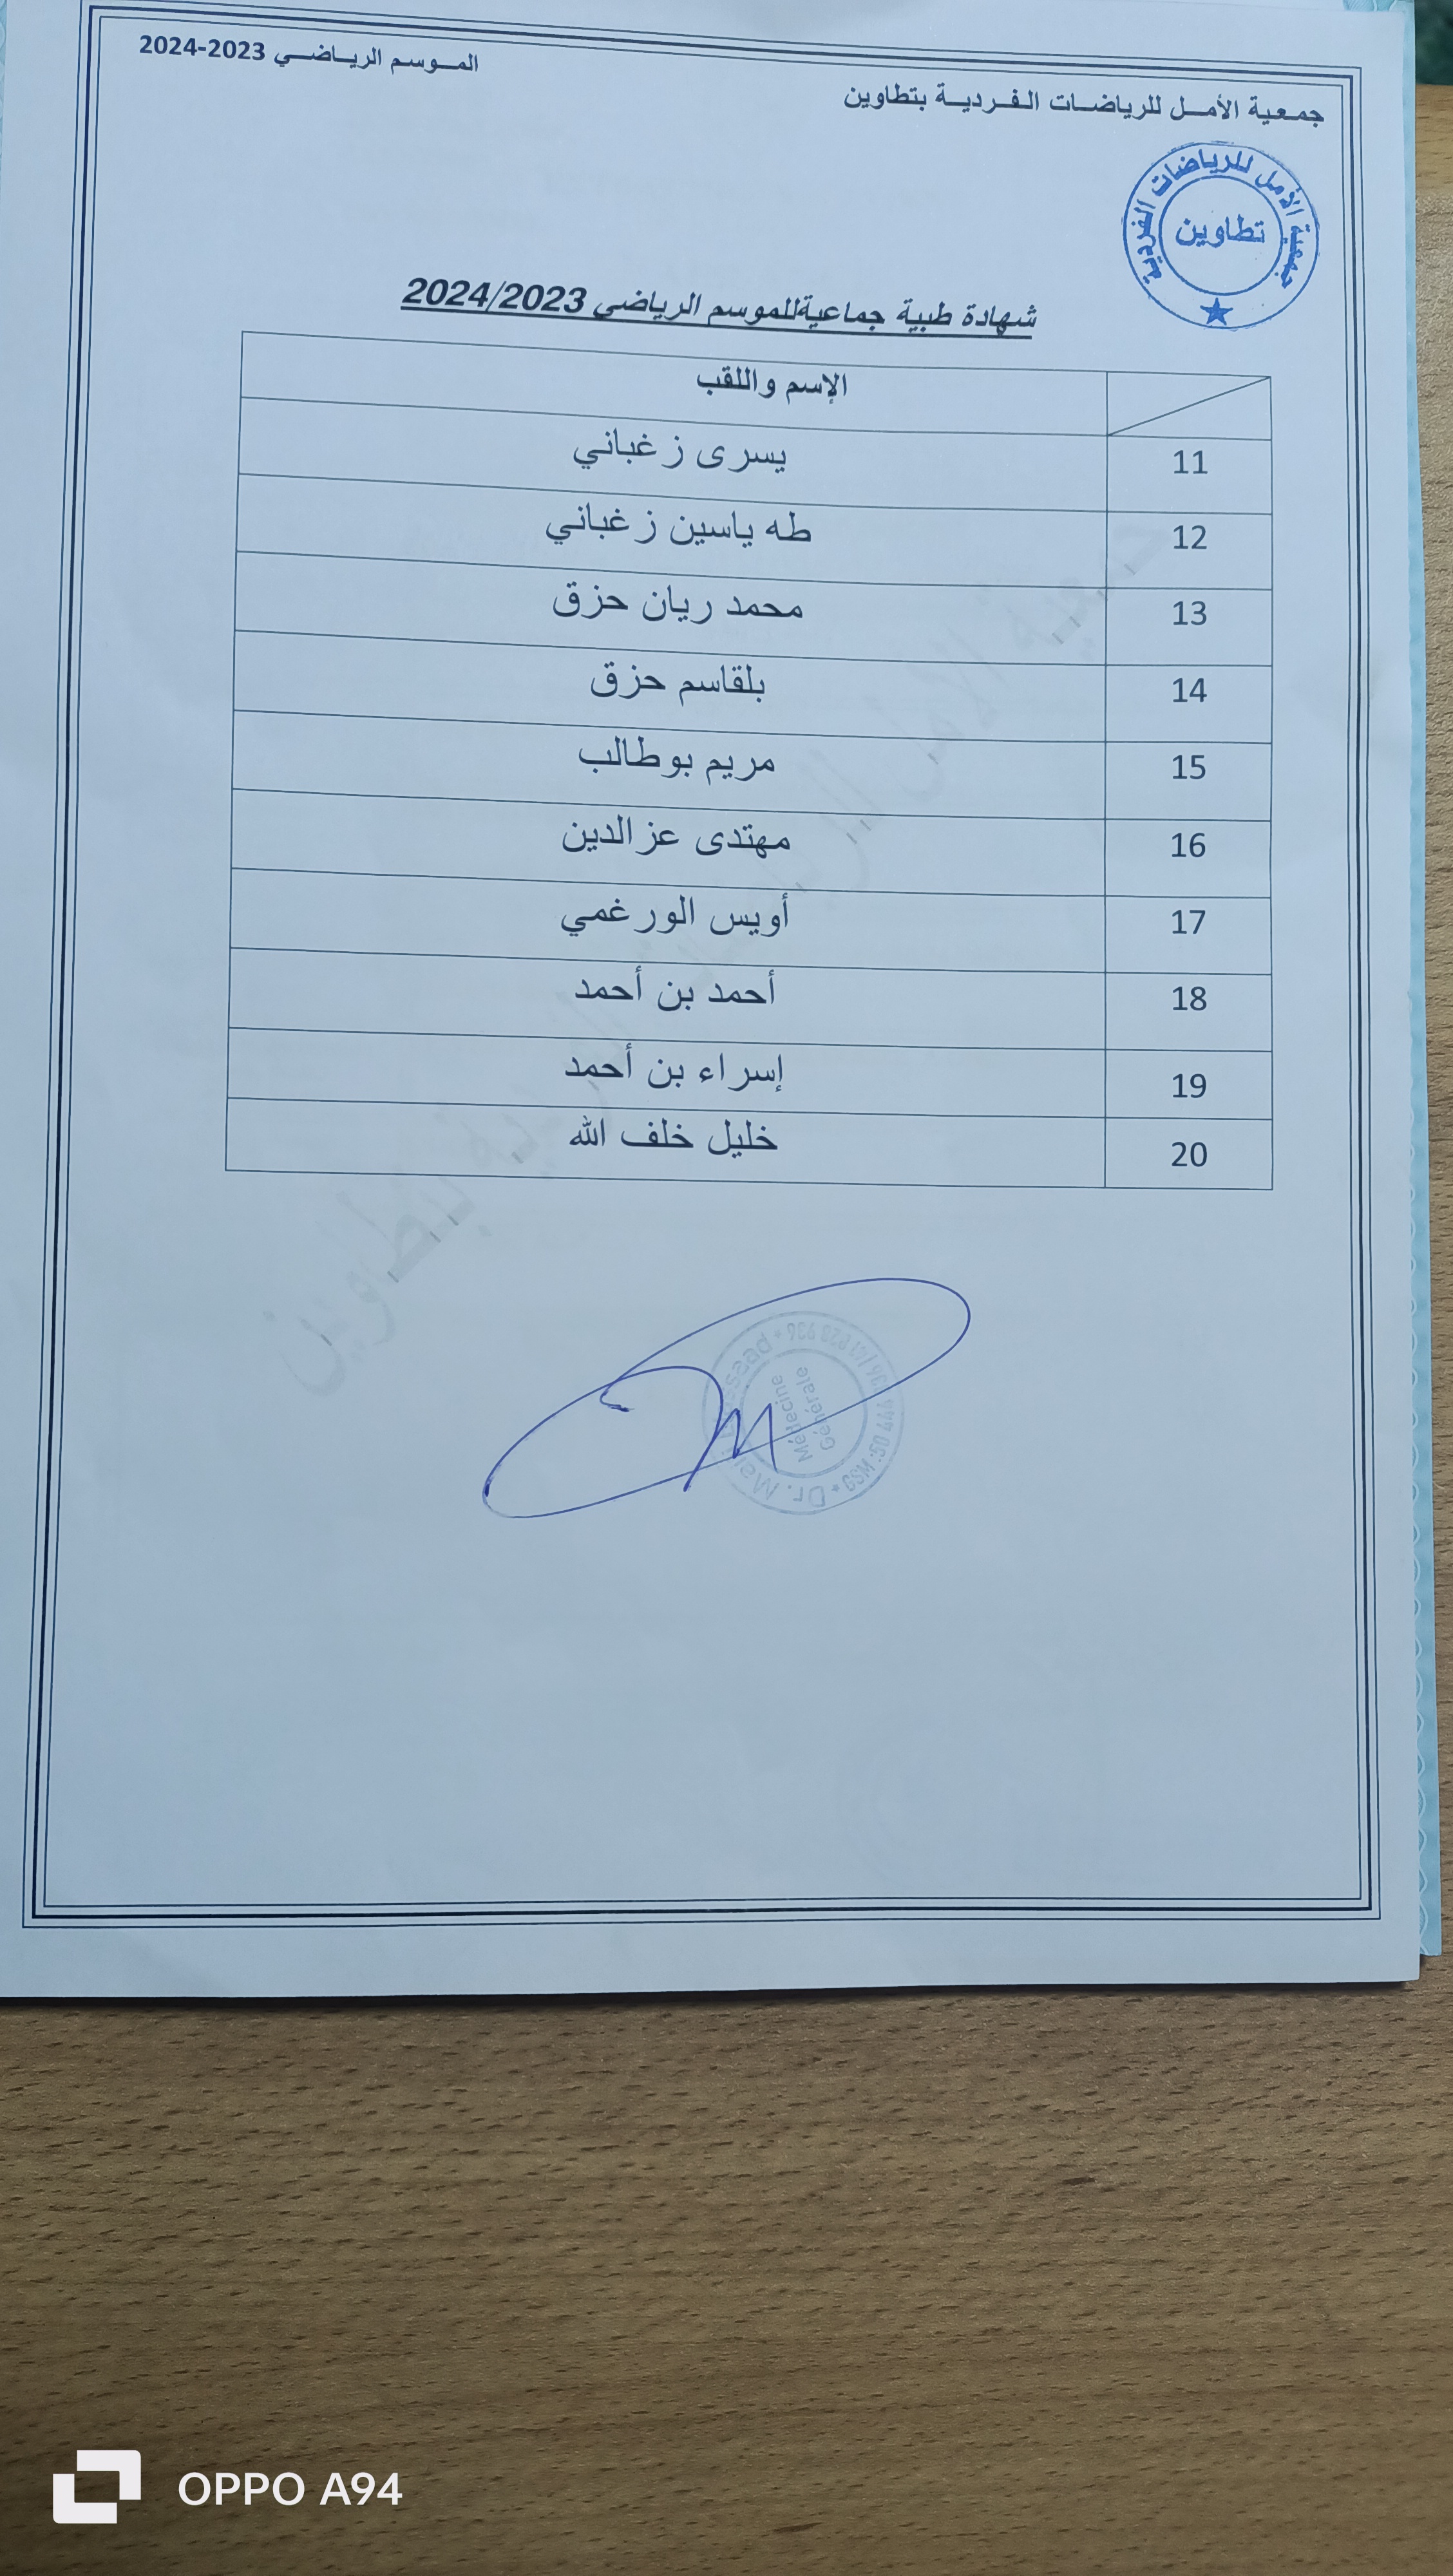 جمعية الأمل للرياضات الفردية بتطاوين
الموسم الرياضي 2023-2024
جمعية الأمل للرياضات الفردية
تطاوين
شهادة طبية جماعيةللموسم الرياضي 2024/2023
الإسم واللقب
11 يسرى زغباني
12 طه ياسين زغباني
13 محمد ريان حزق
14 بلقاسم حزق
15 مريم بوطالب
16 مهتدى عزالدين
17 أويس الورغمي
18 أحمد بن أحمد
19 إسراء بن أحمد
20 خليل خلف الله
جمعية الأمل للرياضات الفردية بتطاوين
Dr.
Médecine
Générale
GSM :
OPPO A94